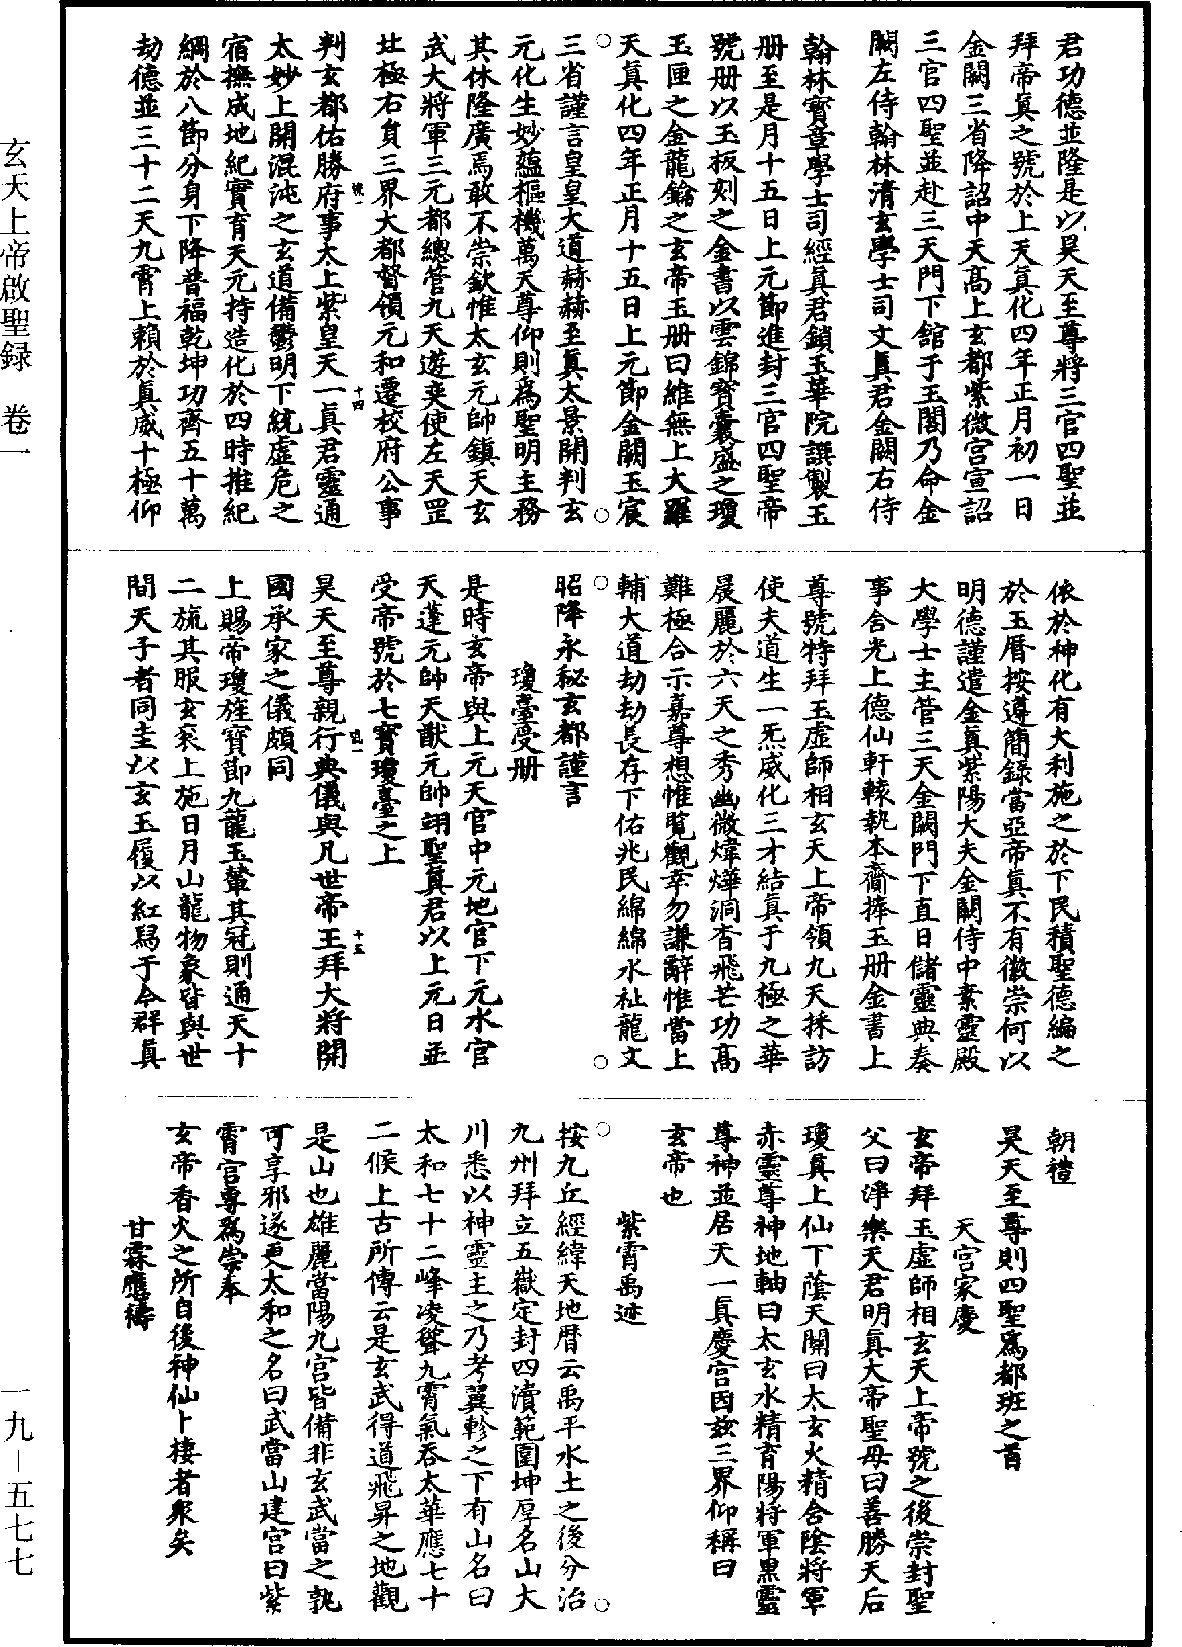 君功德並隆是以昊天至尊將三官四聖並
拜帝真之號於上天真化四年正月初一日
金闕三省降詔中天高上玄都紫微宮宣詔
三官四聖並赴三天門下館于玉閣乃命金
闕左侍翰林清玄學士司文真君金闕右侍
翰林寶章學士司經真君鎖玉華院譔製玉
册至是月十五日上元節進封三官四聖帝
號册以玉板刻之金書以雲錦寶囊盛之瓊
玉匣之金龍鑰之玄帝玉册曰維無上大羅
天真化四年正月十五日上元節金闕玉宸
三省謹言皇皇大道赫赫至真太景開判玄
元化生妙蘊樞機萬天尊仰則爲聖明主務
其休隆廣焉敢不崇欽惟太玄元帥鎮天玄
武大將軍三元都總管九天遊奕使左天罡
北極右負三界大都督領元和遷校府公事
判玄都佑勝府事太上紫皇天一真君靈通
太妙上開混沌之玄道備鬱明下統虛危之
宿撫成地紀實育天元持造化於四時推紀
綱於八節分身下降普福乾坤功齊五十萬
劫德並三十二天九霄上賴於真威十極仰
依於神化有大利施之於下民積聖德編之
於玉曆按遵簡錄當亞帝真不有徽崇何以
明德謹遣金真紫陽大夫金闕侍中素靈殿
大學士主管三天金闕門下直日儲靈典奏
事合光上德仙軒轅執本齎捧玉册金書上
尊號特拜玉虛師相玄天上帝領九天採訪
使夫道生一炁威化三才結真于九極之華
晨麗於六天之秀幽微煒燁洞杳飛芒功高
難極合示嘉尊想惟覽觀幸勿謙辭惟當上
輔大道劫劫長存下佑兆民綿綿水祉龍文
昭降永秘玄都謹言
瓊臺受册
是時玄帝與上元天官中元地官下元水官
天蓬元帥天猷元帥翊聖真君以上元日並
受帝號於七寶瓊臺之上
昊天至尊親行典儀與凡世帝王拜大將開
國承家之儀頗同
上賜帝瓊旌寶節九龍玉輦其冠則通天十
二旒其服玄衮上施日月山龍物象皆與世
間天子者同圭以玄玉履以紅舄于今群真
朝禮
昊天至尊則四聖爲都班之首
天宮家慶
玄帝拜玉虛師相玄天上帝號之後崇封聖
父曰淨樂天君明真大帝聖母曰善勝天后
瓊真上仙下蔭天關曰太玄火精含陰將軍
赤靈尊神地軸曰太玄水精育陽將軍黑靈
尊神並居天一真慶宮因茲三界仰稱曰
玄帝也
紫霄禹迹
按九丘經緯天地曆云禹平水土之後分治
九州拜立五嶽定封四瀆範圍坤厚名山大
川悉以神靈主之乃考翼軫之下有山名曰
太和七十二峰凌聳九霄氣吞太華應七十
二候上古所傳云是玄武得道飛昇之地觀
是山也雄麗當陽九宮皆備非玄武當之孰
可享邪遂更太和之名曰武當山建宮曰紫
霄宮專爲崇奉
玄帝香火之所自後神仙卜棲者衆矣
甘霖應禱
玄天上帝啟聖録　卷一
一九—五七七